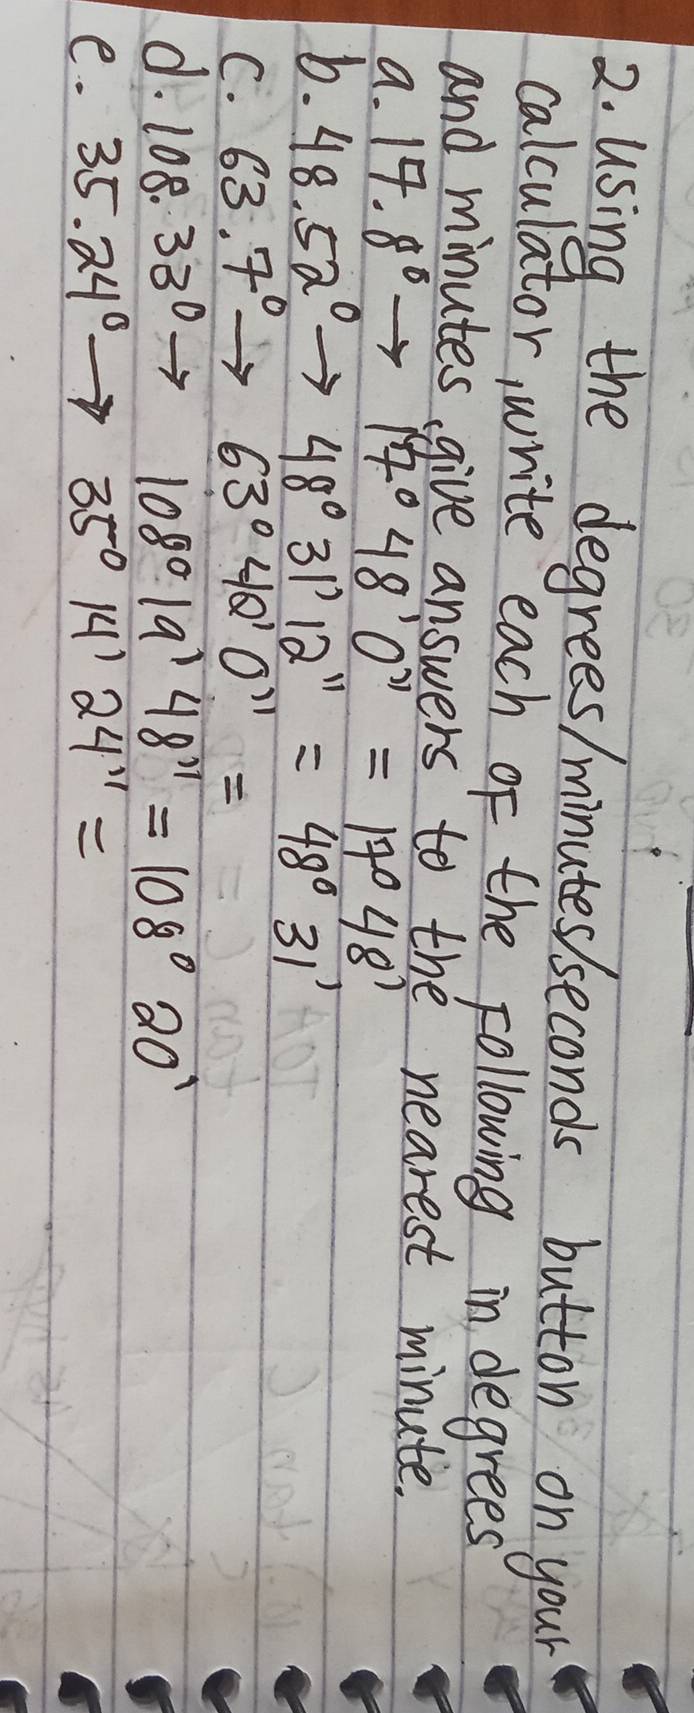 2. Using the degrees/minutes/seconds button on your
calculator, write each of the following in degrees
and minutes, give answers to the nearest minute.
a. 17.8° → 17° 48' 0" = 17° 48'
b. 48.52° → 48° 31' 12" = 48° 31'
c. 63.7° → 63° 42' 0" =
d. 108.33° → 108° 19' 48" = 108° 20'
e. 35.24° → 35° 14' 24" =